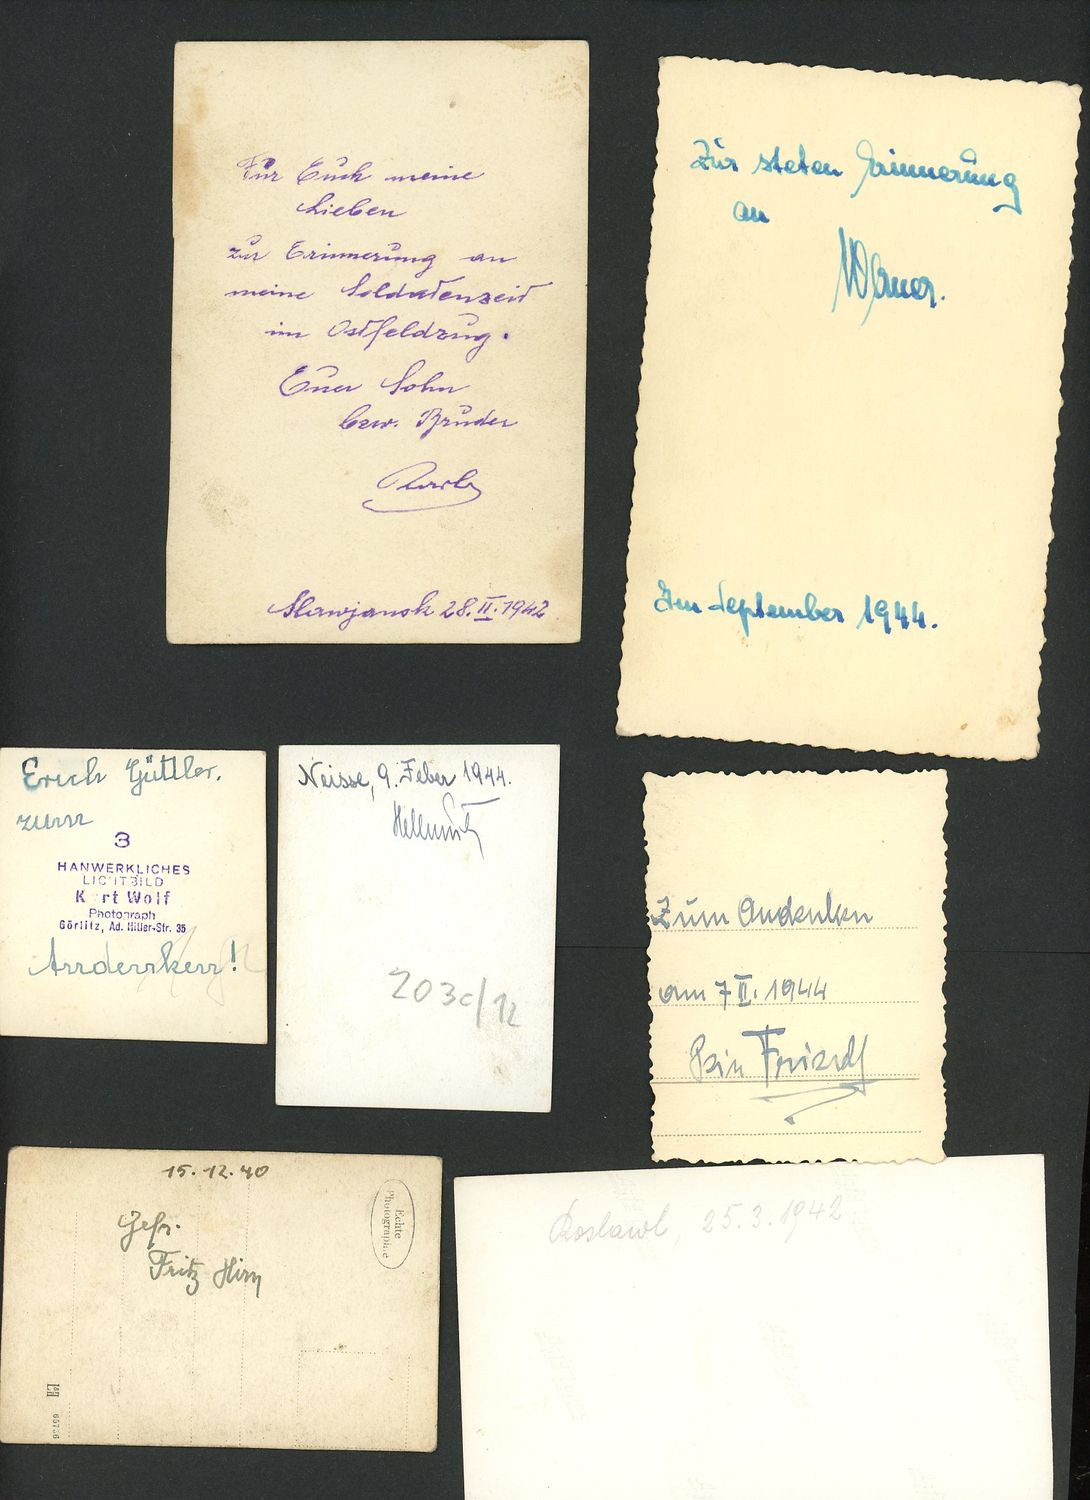 Für Euch meine
Lieben
zur Erinnerung an
meine Soldatenzeit
im Ostfeldzug.
Euer Sohn
bzw. Bruder
Slawjansk 28.II.1942
Zur steten Erinnerung
an
Werner.
Im September 1944.
Erich Güttler.
zum
3
HANWERKLICHES
LICHTBILD
Kurt Wolf
Photograph
Görlitz, Ad. Hitler-Str. 35
Andenken!
Neisse, 9. Feber 1944.
Hellmut
203c/12
Zum Andenken
am 7 II. 1944
15.12.40
Echte
Photographie
Gefr.
Fritz
Roslawl, 25.3.1942